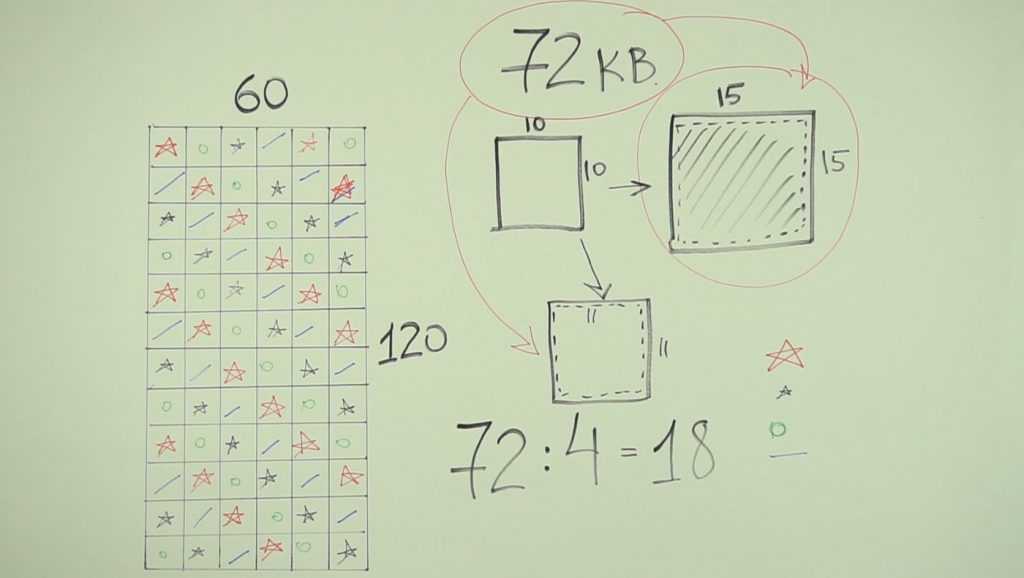 72 КВ.
60
15
10
10
15
11
120
11
72:4=18